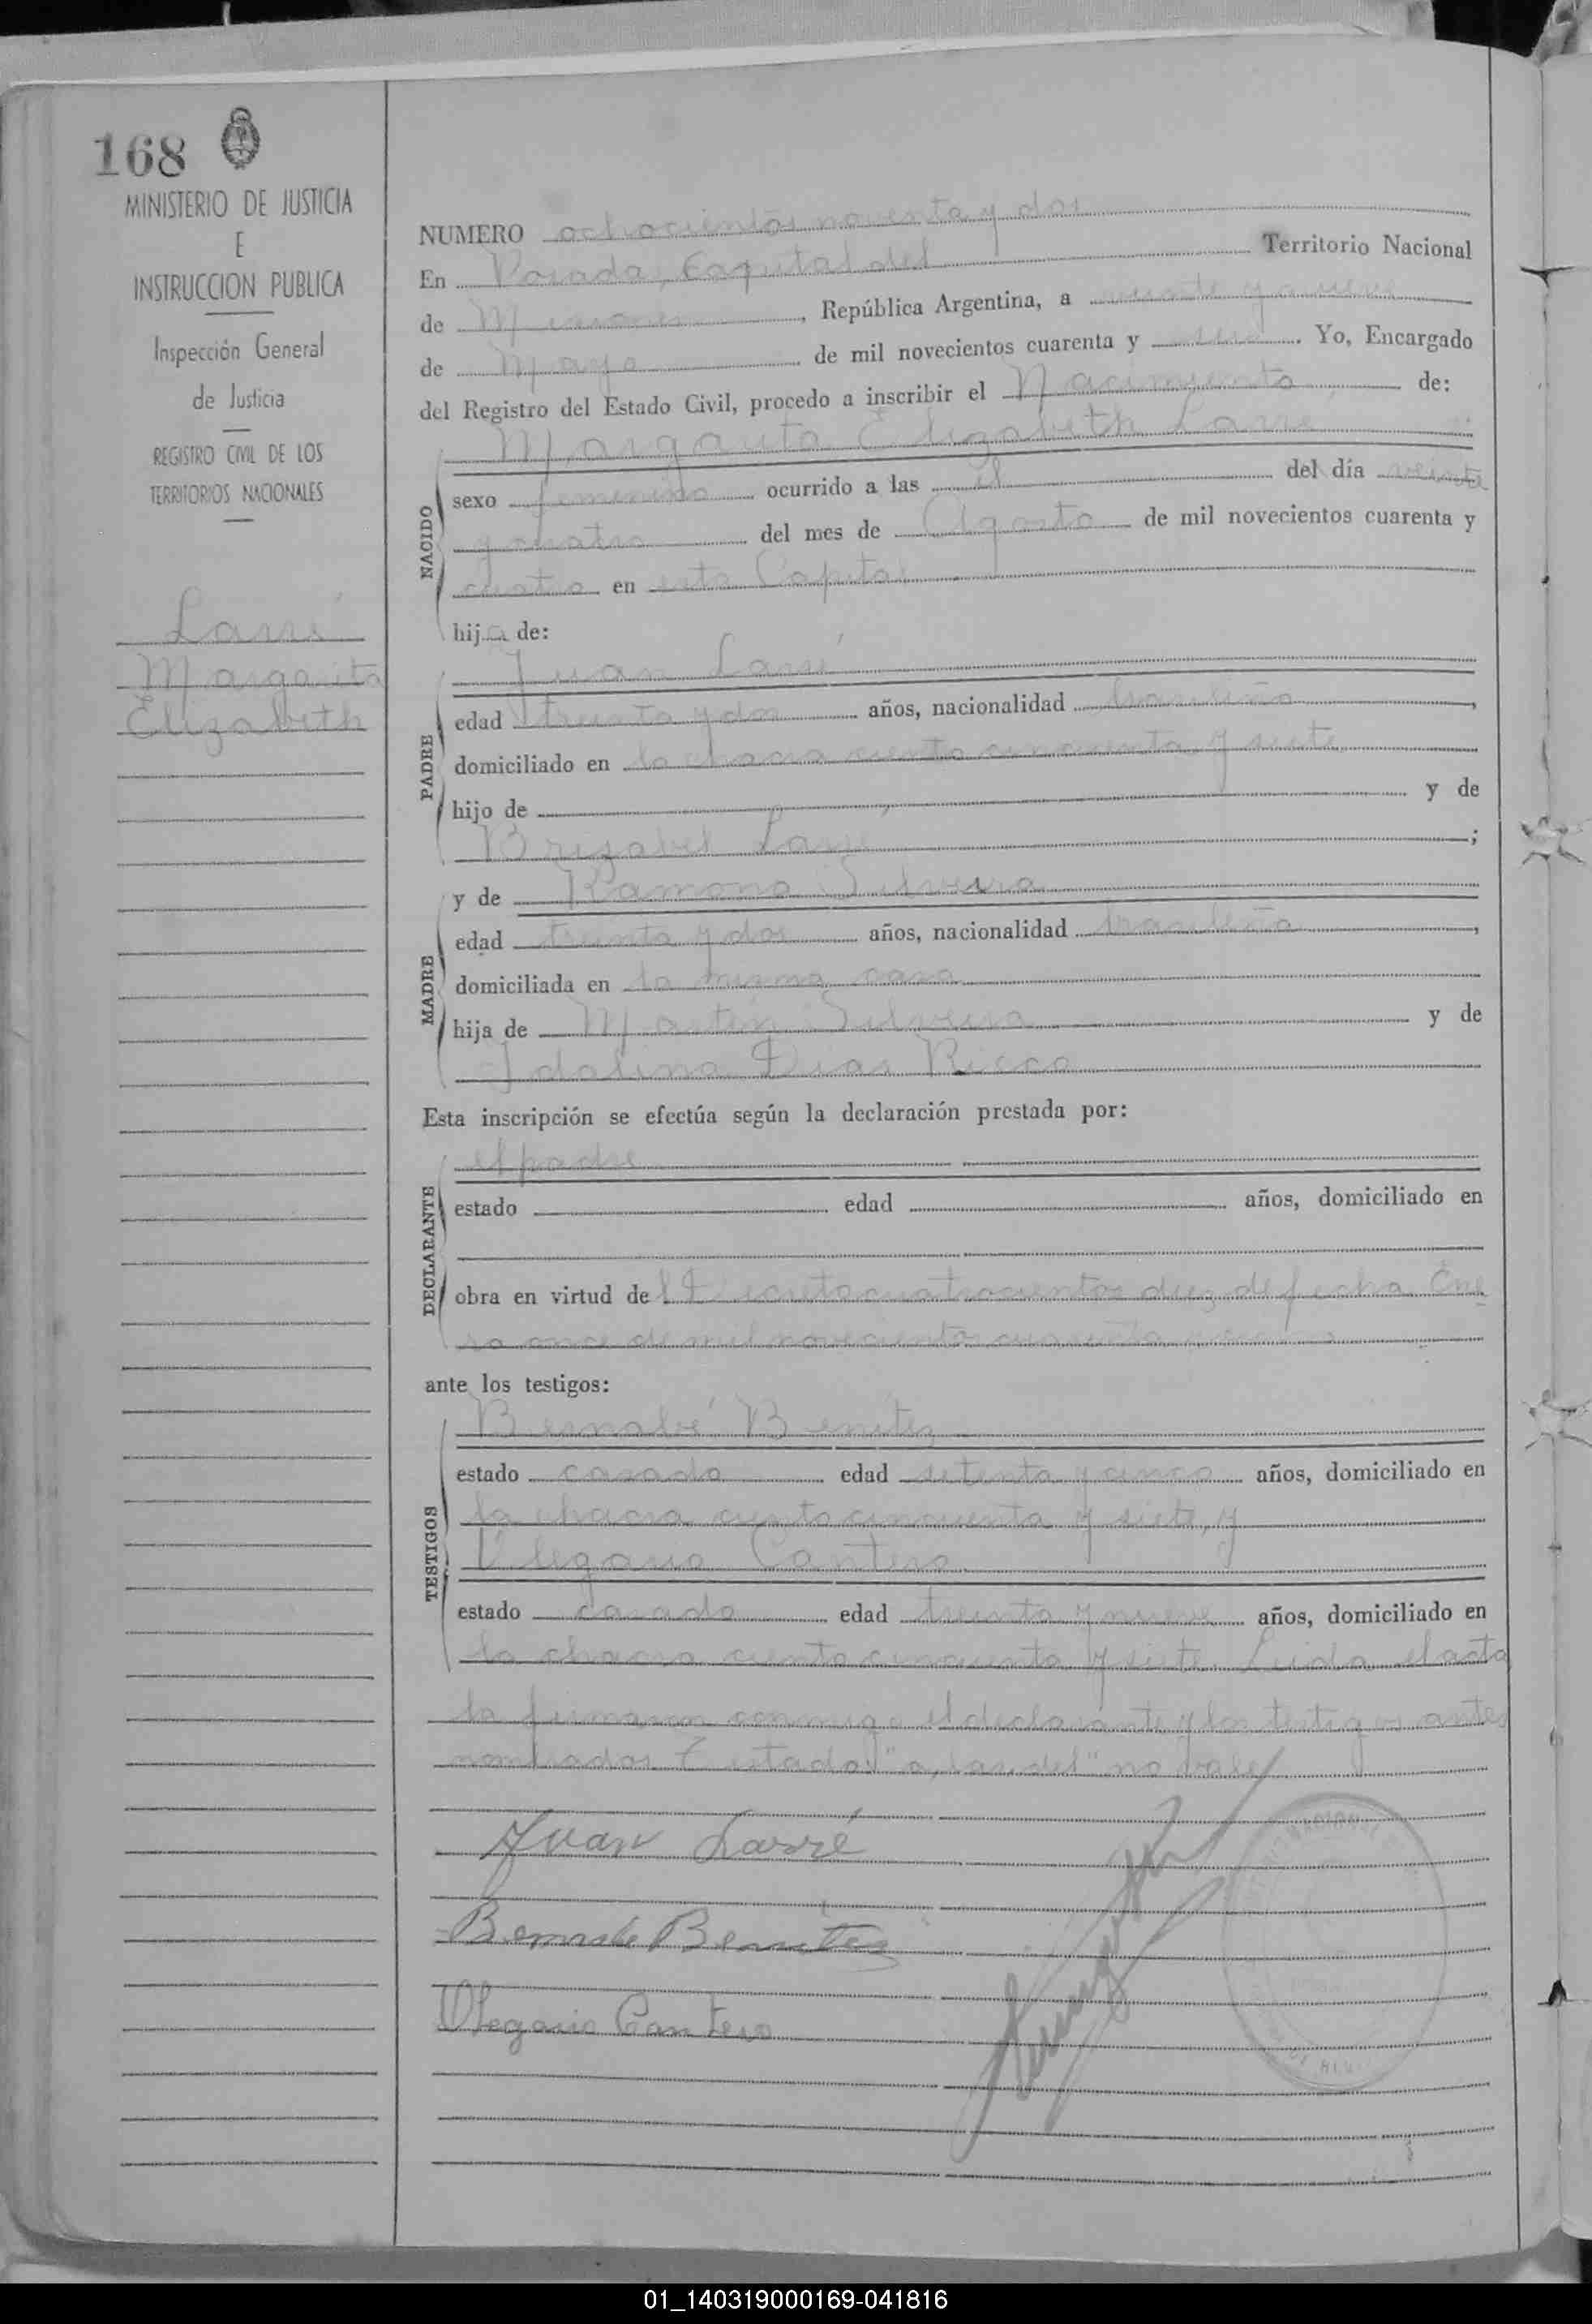 168
MINISTERIO DE JUSTICIA
E
INSTRUCCION PUBLICA
Inspección General
de Justicia
REGISTRO CIVIL DE LOS
TERRITORIOS NACIONALES
Larré
Margarita
Elizabeth
NUMERO ochocientos noventa y dos
En Posadas, Capital del Territorio Nacional
de Misiones, República Argentina, a veinte y nueve
de Mayo de mil novecientos cuarenta y seis. Yo, Encargado
del Registro del Estado Civil, procedo a inscribir el Nacimiento de:
Margarita Elizabeth Larré
NACIDO
sexo femenino ocurrido a las el del día veinte
y cuatro del mes de Agosto de mil novecientos cuarenta y
cuatro en esta Capital
hija de:
Juan Larré
PADRE
edad treinta y dos años, nacionalidad brasileña,
domiciliado en la chacra ciento cincuenta y siete
hijo de y de
Larré;
y de Ramona Silveira
MADRE
edad treinta y dos años, nacionalidad brasileña,
domiciliada en la misma casa
hija de Martin Silveira y de
Idalina Dias
Esta inscripción se efectúa según la declaración prestada por:
el padre
DECLARANTE
estado edad años, domiciliado en
obra en virtud del Decreto cuatrocientos diez de fecha Ene
ro once de mil novecientos cuarenta
ante los testigos:
Bernabé Benitez
TESTIGOS
estado casado edad setenta y cinco años, domiciliado en
la chacra ciento cincuenta y siete, y
Olegario Cantero
estado casado edad treinta y nueve años, domiciliado en
la chacra ciento cincuenta y siete. Leida el acta
la firmaron conmigo el declarante y los testigos antes
nombrados. Testado: "a, las, del" no vale
Juan Larré
Bernabe Benitez
Olegario Cantero
01_140319000169-041816